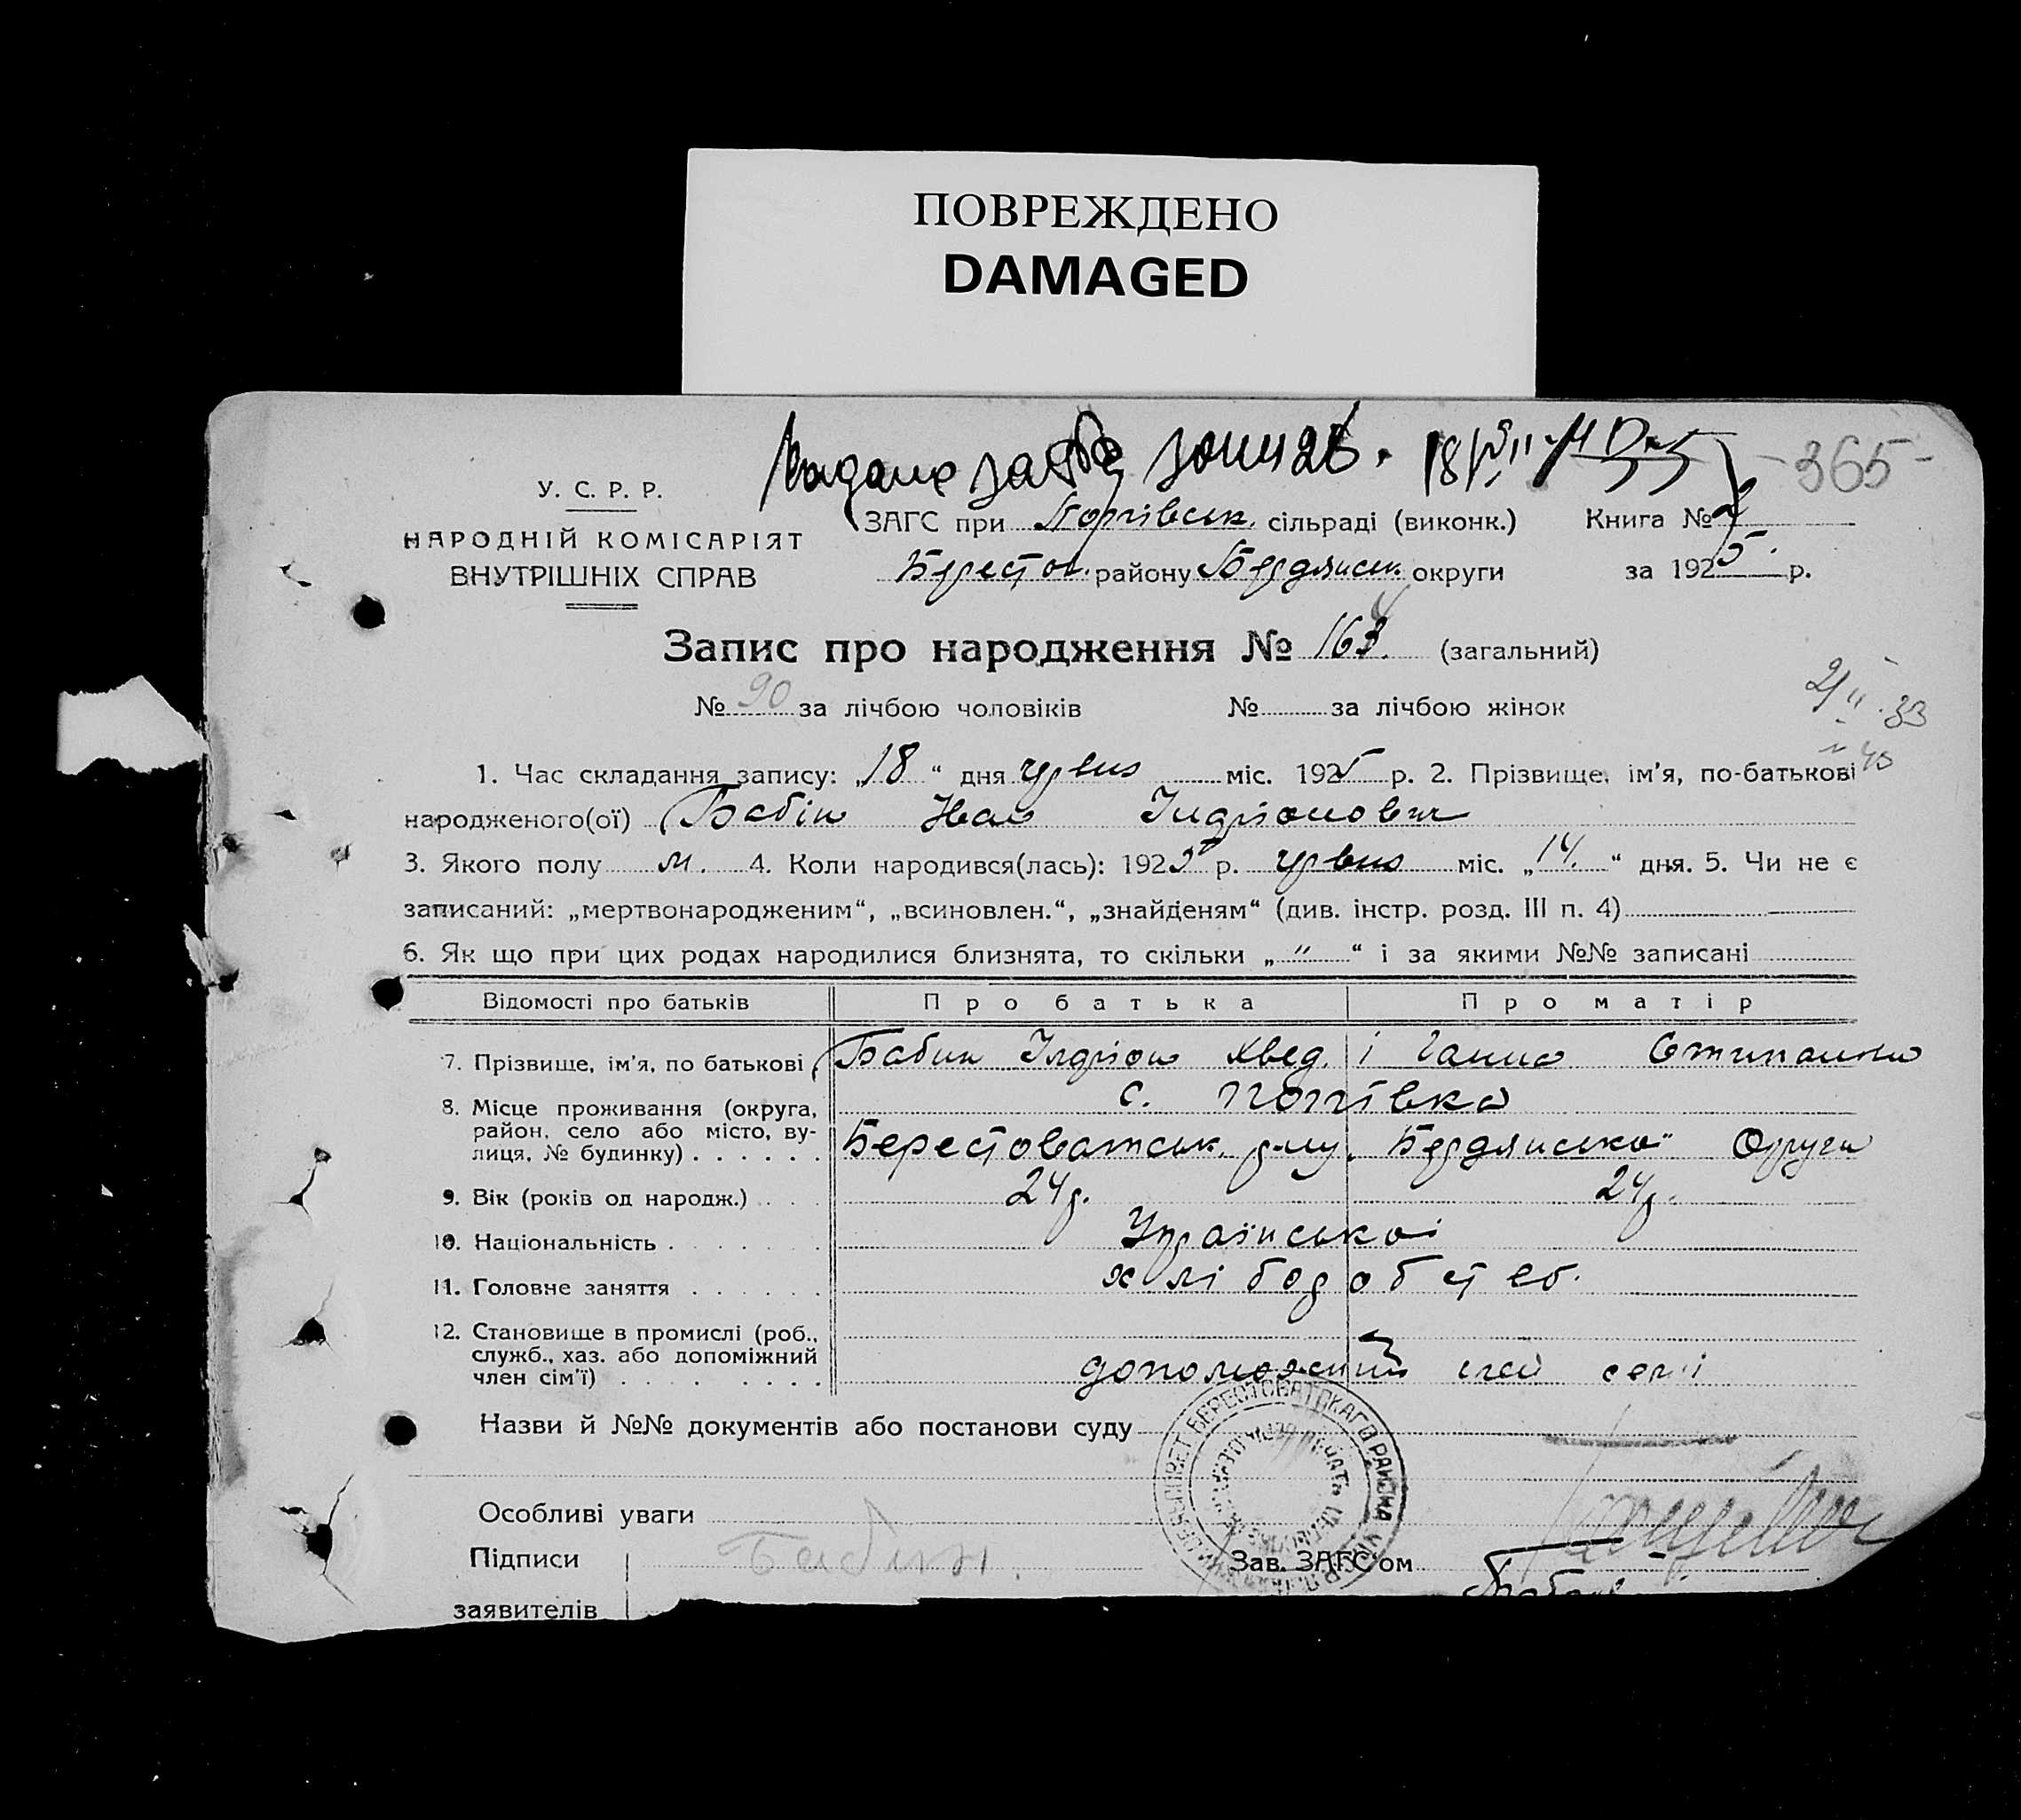 ПОВРЕЖДЕНО
DAMAGED
365
У. С. Р. Р.
НАРОДНІЙ КОМІСАРІЯТ
ВНУТРІШНІХ СПРАВ
ЗАГС при сільраді (виконк.) Книга №
Берестов. району Бердянськ. округи за 1925 р.
Запис про народження № 163. (загальний)
№ 90 за лічбою чоловіків № за лічбою жінок
1. Час складання запису: „18“ дня червня міс. 1925 р. 2. Прізвище, ім'я, по-батькові
народженого(ої) Бабін Иван Індріонович
3. Якого полу м. 4. Коли народився(лась): 1925 р. червня міс. „14.“ дня. 5. Чи не є
записаний: „мертвонародженим“, „всиновлен.“, „знайденям“ (див. інстр. розд. III п. 4)
6. Як що при цих родах народилися близнята, то скільки „ " “ і за якими №№ записані
Відомості про батьків Про батька Про матір
7. Прізвище, ім'я, по батькові Бабин Індріон Хвед. і Ганна
8. Місце проживання (округа, район, село або місто, ву-
лиця, № будинку) . . . . . . с. Попівка
Берестоватськ. Бердянської Округи
9. Вік (років од народж.) . . . 24р. 24р.
10. Національність . . . . . . . Української
11. Головне заняття . . . . . . хліборобств.
12. Становище в промислі (роб.,
служб., хаз. або допоміжний
член сім'ї) . . . . . . . . . допоможний член семі
Назви й №№ документів або постанови суду
Особливі уваги
Підписи Бабин Зав. ЗАГС'ом
заявителів